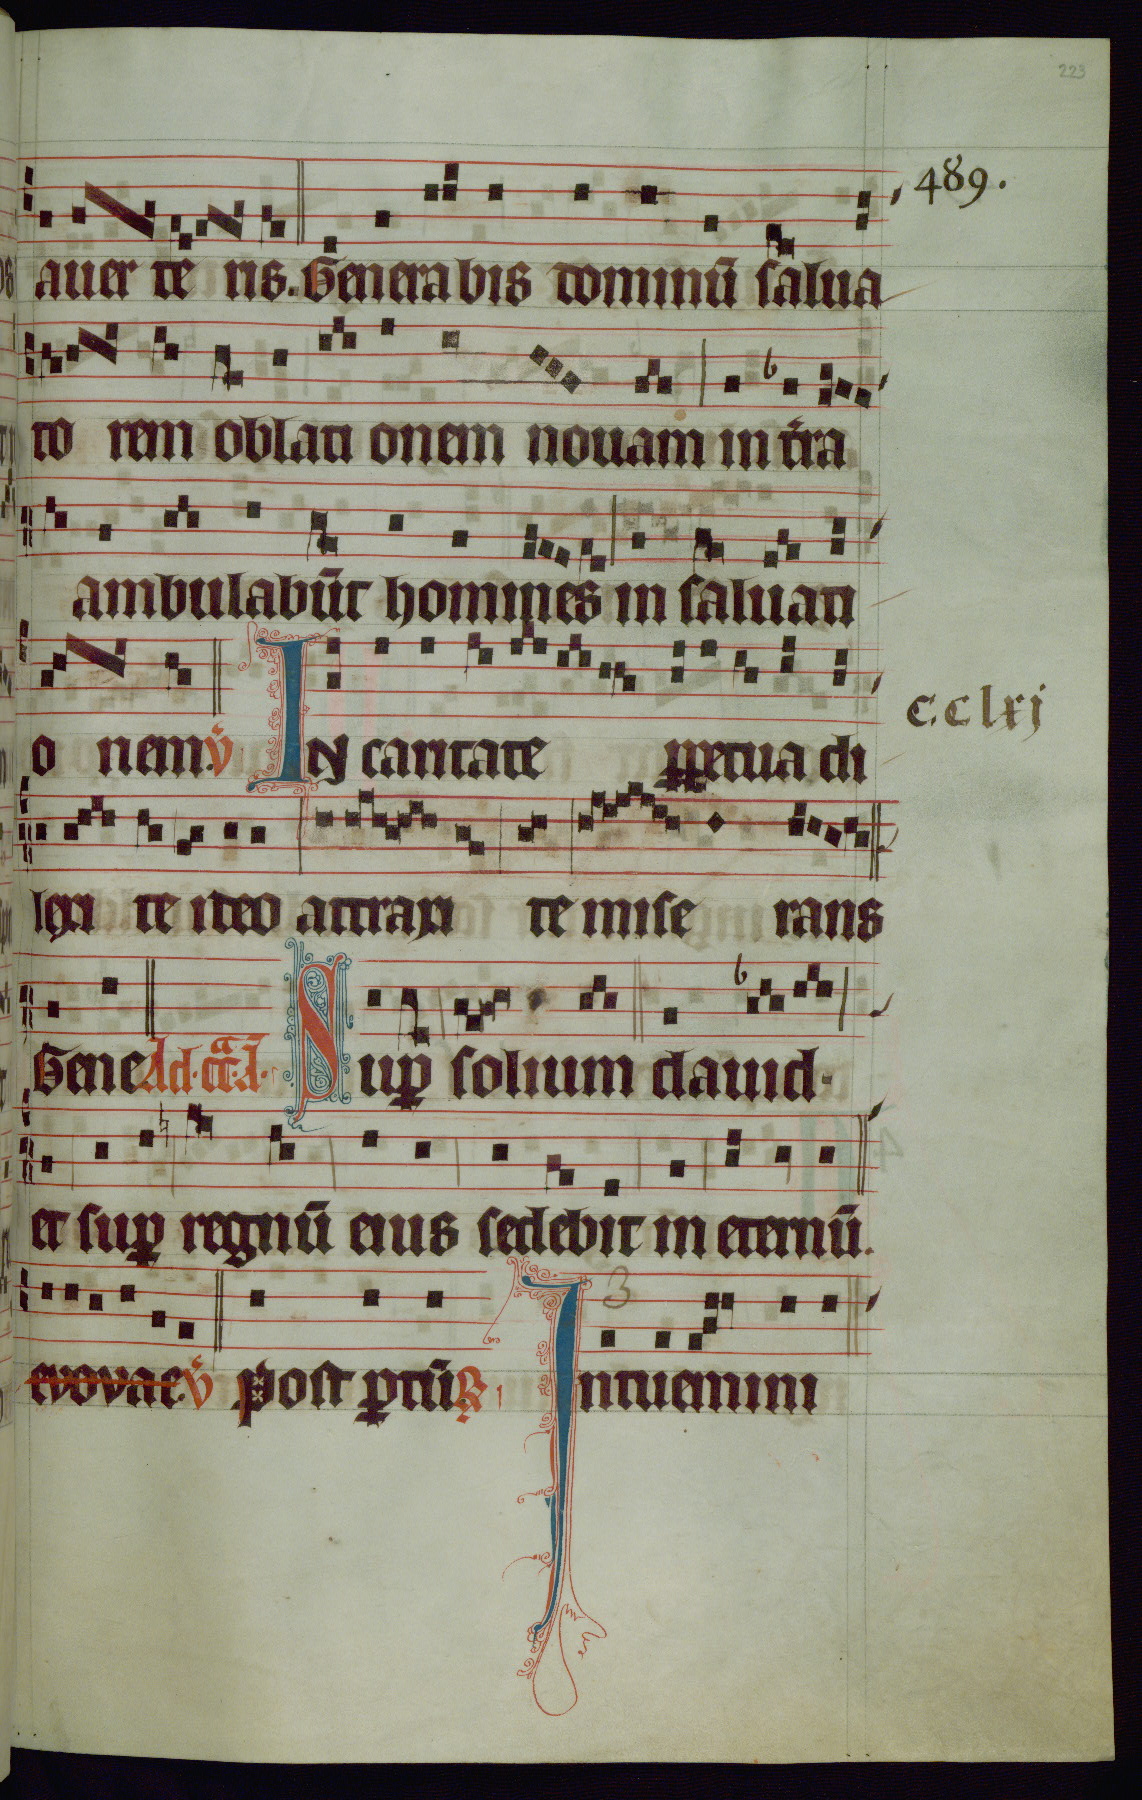 223
489.
auer te ris. Generabis dominū salua
to rem oblati onem nouam in t̄ra
ambulabūt homines in saluati
CClxj
o nem. ℣ IN caritate ꝑpetua di
lexi te ideo attraxi te mise rans
Gene Ad. cā. A. Suꝑ solium dauid.
et suꝑ regnū eius sedebit in eternū.
evovae. ℣ post ꝑtū ℟ 3 Intuemini